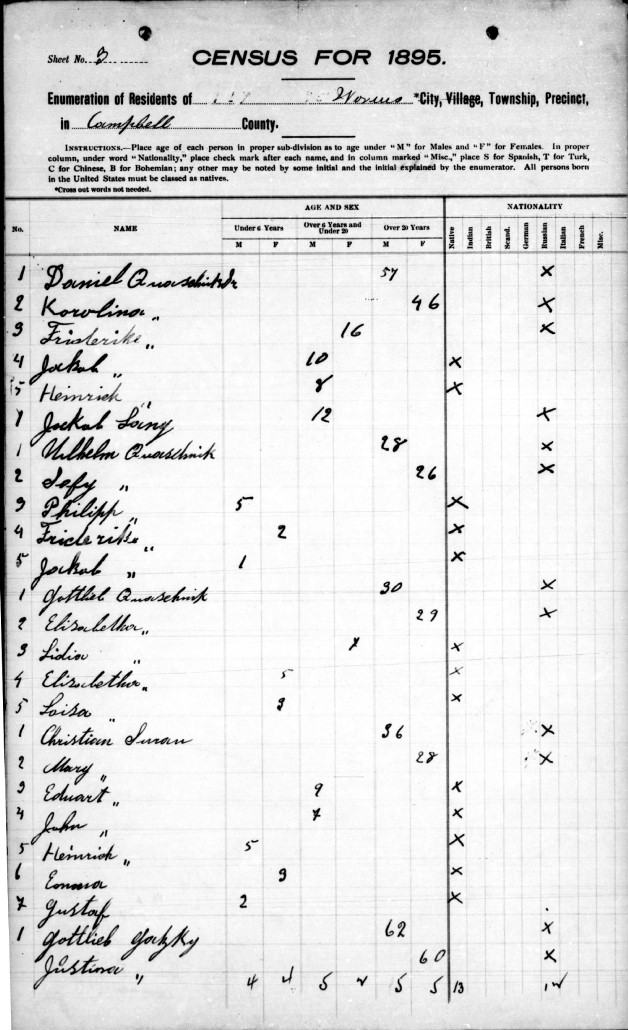 Sheet No. 3
CENSUS FOR 1895.
Enumeration of Residents of Worms *City, Village, Township, Precinct,
in Campbell County.
INSTRUCTIONS.—Place age of each person in proper sub-division as to age under "M" for Males and "F" for Females. In proper
column, under word "Nationality," place check mark after each name, and in column marked "Misc.," place S for Spanish, T for Turk,
C for Chinese, B for Bohemian; any other may be noted by some initial and the initial explained by the enumerator. All persons born
in the United States must be classed as natives.
*Cross out words not needed.
AGE AND SEX NATIONALITY
No. NAME Under 6 Years Over 6 Years and Under 20 Over 20 Years Native Indian British Scand. German Russian Italian French Misc.
M F M F M F
1 Daniel Quaschnik Jr 57 x
2 Karolina " 46 x
3 Friderike " 16 x
4 Jackob " 10 x
5 Heinrich " 8 x
1 Jackob Lang 12 x
1 Wilhelm Quaschnik 28 x
2 Sefy " 26 x
3 Philipp " 5 x
4 Friderike " 2 x
5 Jakob " 1 x
1 Gottlieb Quaschnik 30 x
2 Elisabetha " 29 x
3 Lidia " 7 x
4 Elisabetha " 5 x
5 Loisa " 3 x
1 Christian 36 x
2 Mary " 28 x
3 Eduart " 9 x
4 John " 7 x
5 Heinrich " 5 x
6 Emma 3 x
7 Gustaf 2 x
1 Gottlieb 62 x
Justina " 60 x
4 4 5 2 5 5 13 12